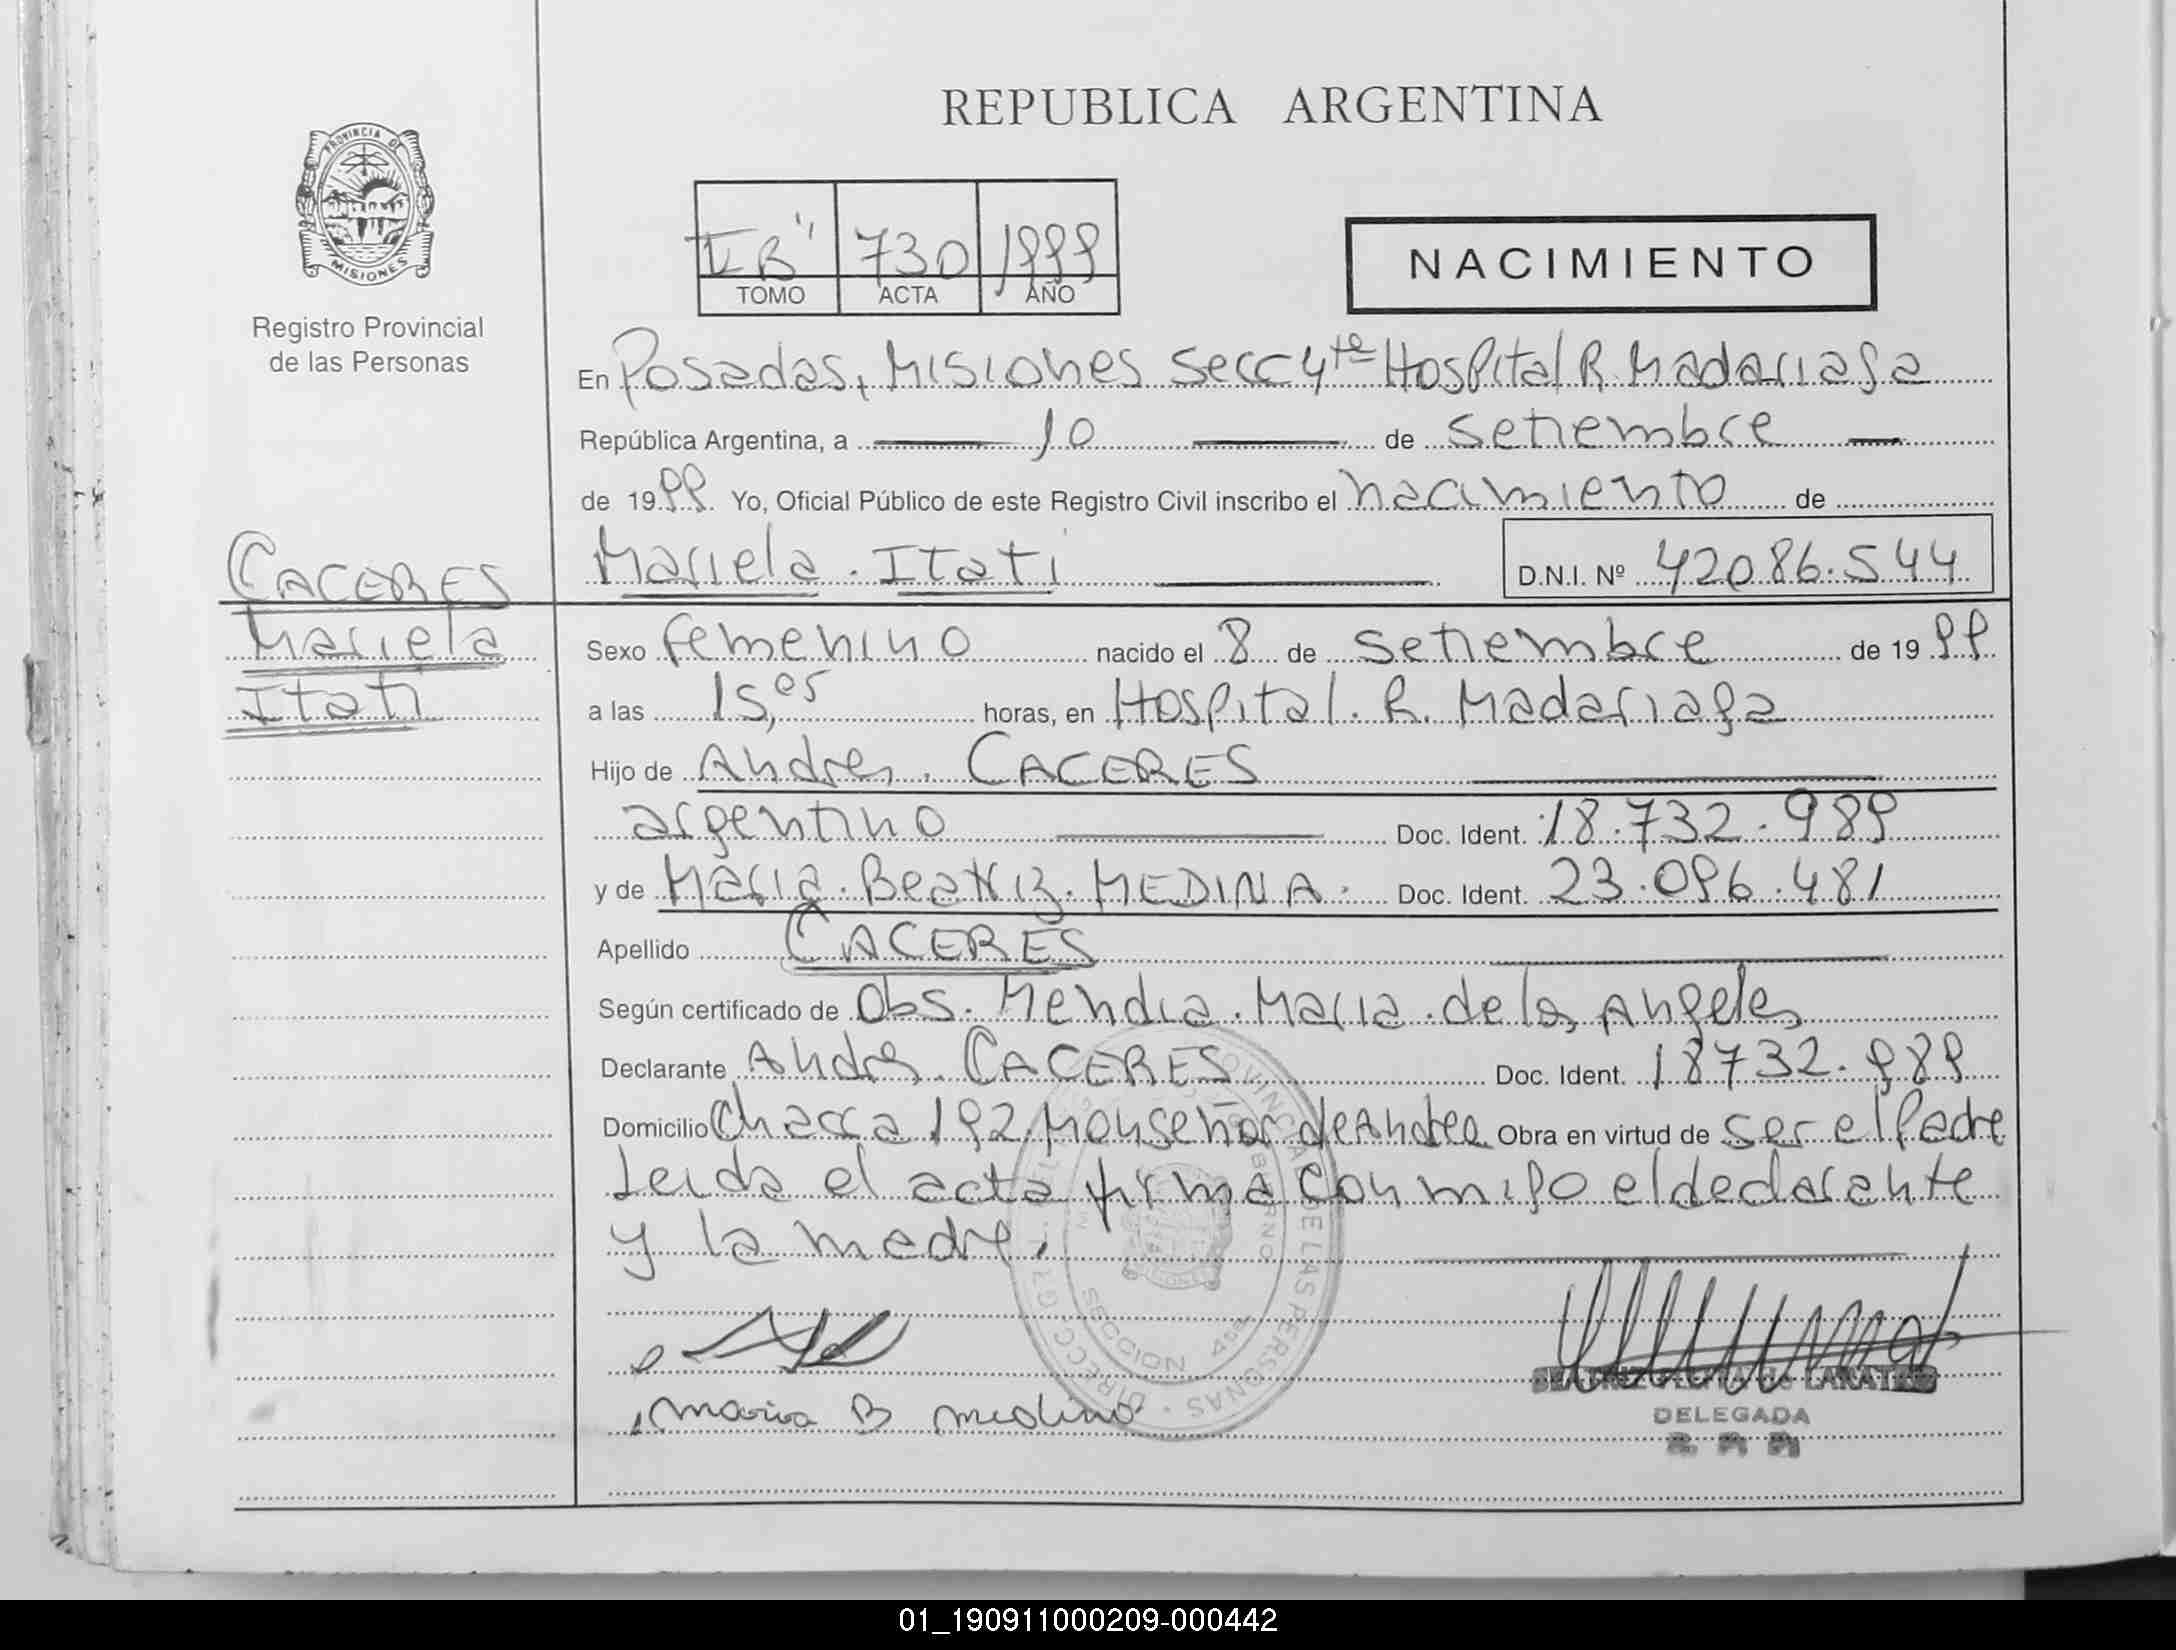 REPUBLICA ARGENTINA
PROVINCIA DE
MISIONES
Registro Provincial
de las Personas
730 1999
TOMO ACTA AÑO
NACIMIENTO
En Posadas, Misiones Secc 4ta Hospital R. Madariaga
República Argentina, a 10 de Setiembre
de 1999 Yo, Oficial Público de este Registro Civil inscribo el nacimiento de
Mariela Itati D.N.I. Nº 42086.544
CACERES
Mariela
Itati
Sexo femenino nacido el 8 de Setiembre de 1999
a las 15,05 horas, en Hospital. R. Madariaga
Hijo de Andres. CACERES
argentino Doc. Ident. 18.732.989
y de Maria. Beatriz. MEDINA. Doc. Ident. 23.096.481
Apellido CACERES
Según certificado de Obs. Mendia. Maria. de los Angeles
Declarante Andres. CACERES Doc. Ident. 18732.989
Domicilio Chacra 192. Monseñor de Andrea Obra en virtud de ser el Padre
Leida el acta firma con migo el declarante
y la madre.
DIRECC GRAL PROVINCIAL DE LAS PERSONAS
SECCION 4ta
Maria B medina
DELEGADA
01_190911000209-000442